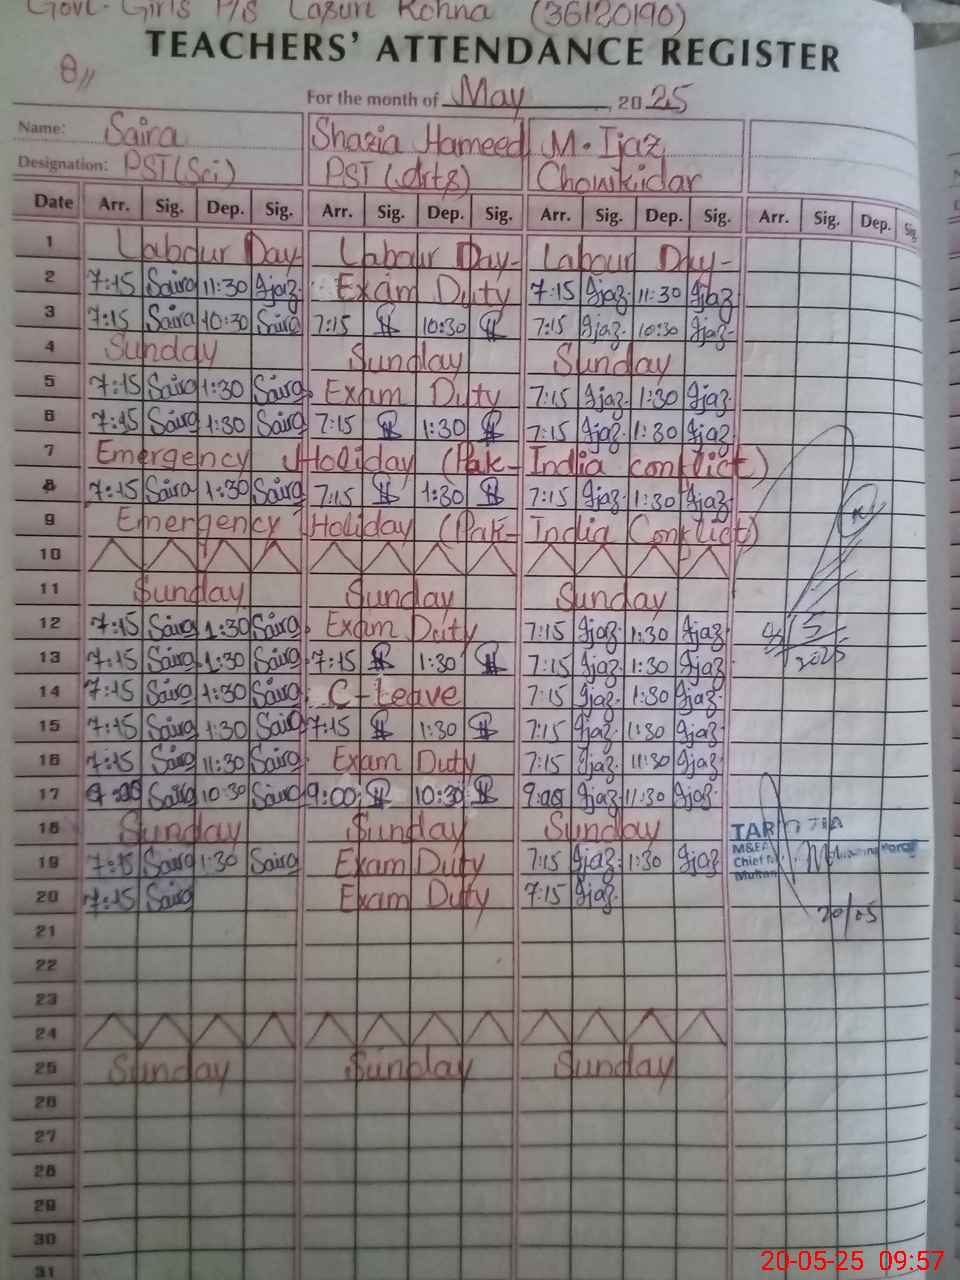 Govt. Girls P/S Lasuri Kohna (36120190)
TEACHERS' ATTENDANCE REGISTER
For the month of May, 2025
Name: Saira Shazia Hameed M. Ijaz
Designation: PST(Sci) PST (Arts) Chowkidar
Date Arr. Sig. Dep. Sig. Arr. Sig. Dep. Sig. Arr. Sig. Dep. Sig. Arr. Sig. Dep. Sig.
1 Labour Day Labour Day- Labour Day-
2 7:15 Saira 11:30 Ijaz Exam Duty 7:15 Ijaz 11:30 Ijaz
3 7:15 Saira 10:30 Saira 7:15 10:30 7:15 Ijaz 10:30 Ijaz
4 Sunday Sunday Sunday
5 7:15 Saira 1:30 Saira Exam Duty 7:15 Ijaz 1:30 Ijaz
6 7:15 Saira 1:30 Saira 7:15 1:30 7:15 Ijaz 1:30 Ijaz
7 Emergency Holiday (Pak-India conflict)
8 7:15 Saira 1:30 Saira 7:15 1:30 7:15 Ijaz 1:30 Ijaz
9 Emergency Holiday (Pak-India Conflict)
10
11 Sunday Sunday Sunday
12 7:15 Saira 1:30 Saira Exam Duty 7:15 Ijaz 1:30 Ijaz
13 7:15 Saira 1:30 Saira 7:15 1:30 7:15 Ijaz 1:30 Ijaz
2025
14 7:15 Saira 1:30 Saira C-Leave 7:15 Ijaz 1:30 Ijaz
15 7:15 Saira 1:30 Saira 7:15 1:30 7:15 Ijaz 1:30 Ijaz
16 7:15 Saira 11:30 Saira Exam Duty 7:15 Ijaz 11:30 Ijaz
17 9:00 Saira 10:30 Saira 9:00 10:30 9:00 Ijaz 11:30 Ijaz
18 Sunday Sunday Sunday
19 7:15 Saira 1:30 Saira Exam Duty 7:15 Ijaz 1:30 Ijaz
20 7:15 Saira Exam Duty 7:15 Ijaz
Multan
20/05
21
22
23
24
25 Sunday Sunday Sunday
26
27
28
29
30
31
20-05-25 09:57